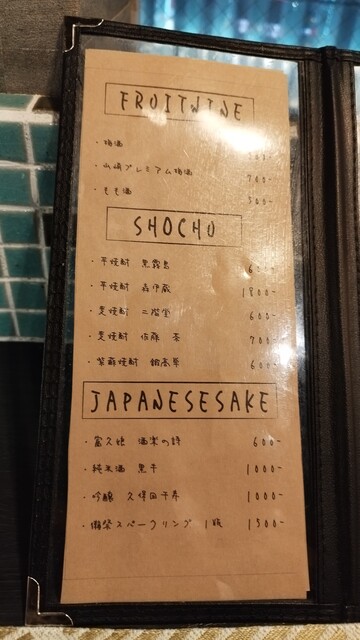 FRUITWINE
・梅酒 500-
・山崎プレミアム梅酒 700-
・もも酒 500-
SHOCHU
・芋焼酎 黒霧島 600-
・芋焼酎 森伊蔵 1800-
・麦焼酎 二階堂 600-
・麦焼酎 佐藤 麦 700-
・紫蘇焼酎 鍛高草 600-
JAPANESESAKE
・富久娘 酒楽の詩 600-
・純米酒 黒牛 1000-
・吟醸 久保田千寿 1000-
・獺祭スパークリング 1瓶 1500-